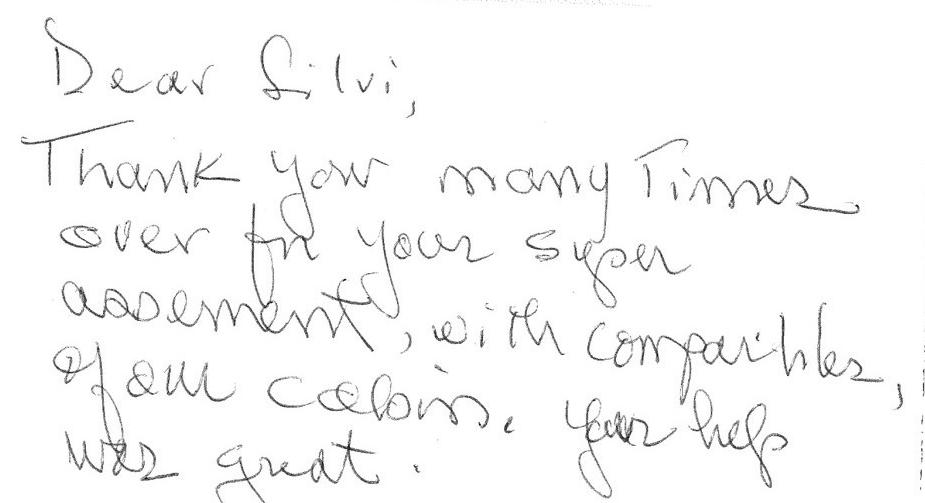 Dear Silvi,
Thank you many Times
over for your super
assement, with comparibles,
of our cabin. Your help
was great.